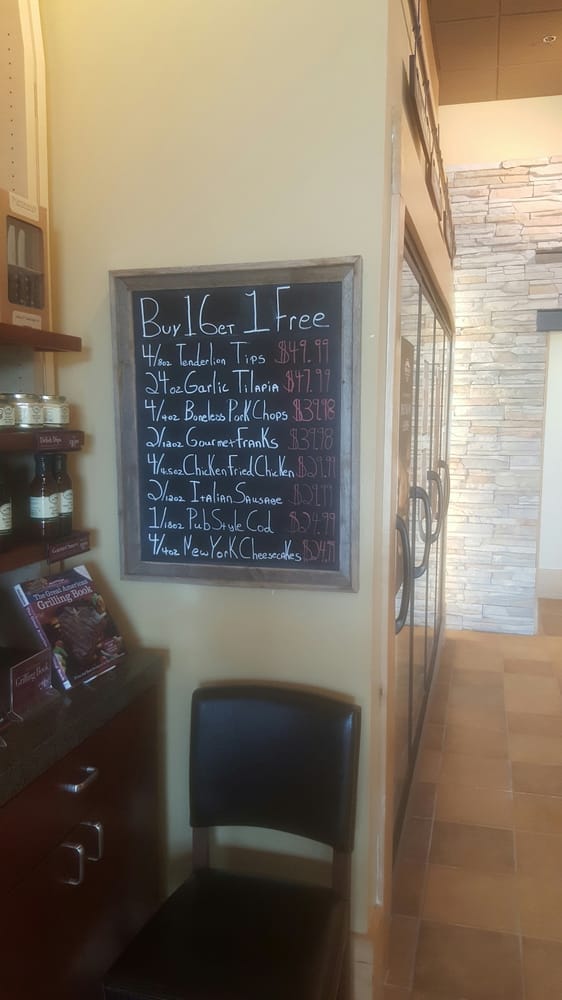 Buy 1 Get 1 Free
4/8oz Tenderlion Tips $49.99
24oz Garlic Tilapia $47.99
4/4oz Boneless Pork Chops $39.98
2/12oz Gourmet Franks $39.98
4/4.5oz Chicken Fried Chicken $29.99
2/12oz Italian Sausage $29.99
1/18oz Pub Style Cod $24.99
4/4oz New York Cheesecakes $24.99
Relish Dips
The Great American
Grilling Book
Grilling Book